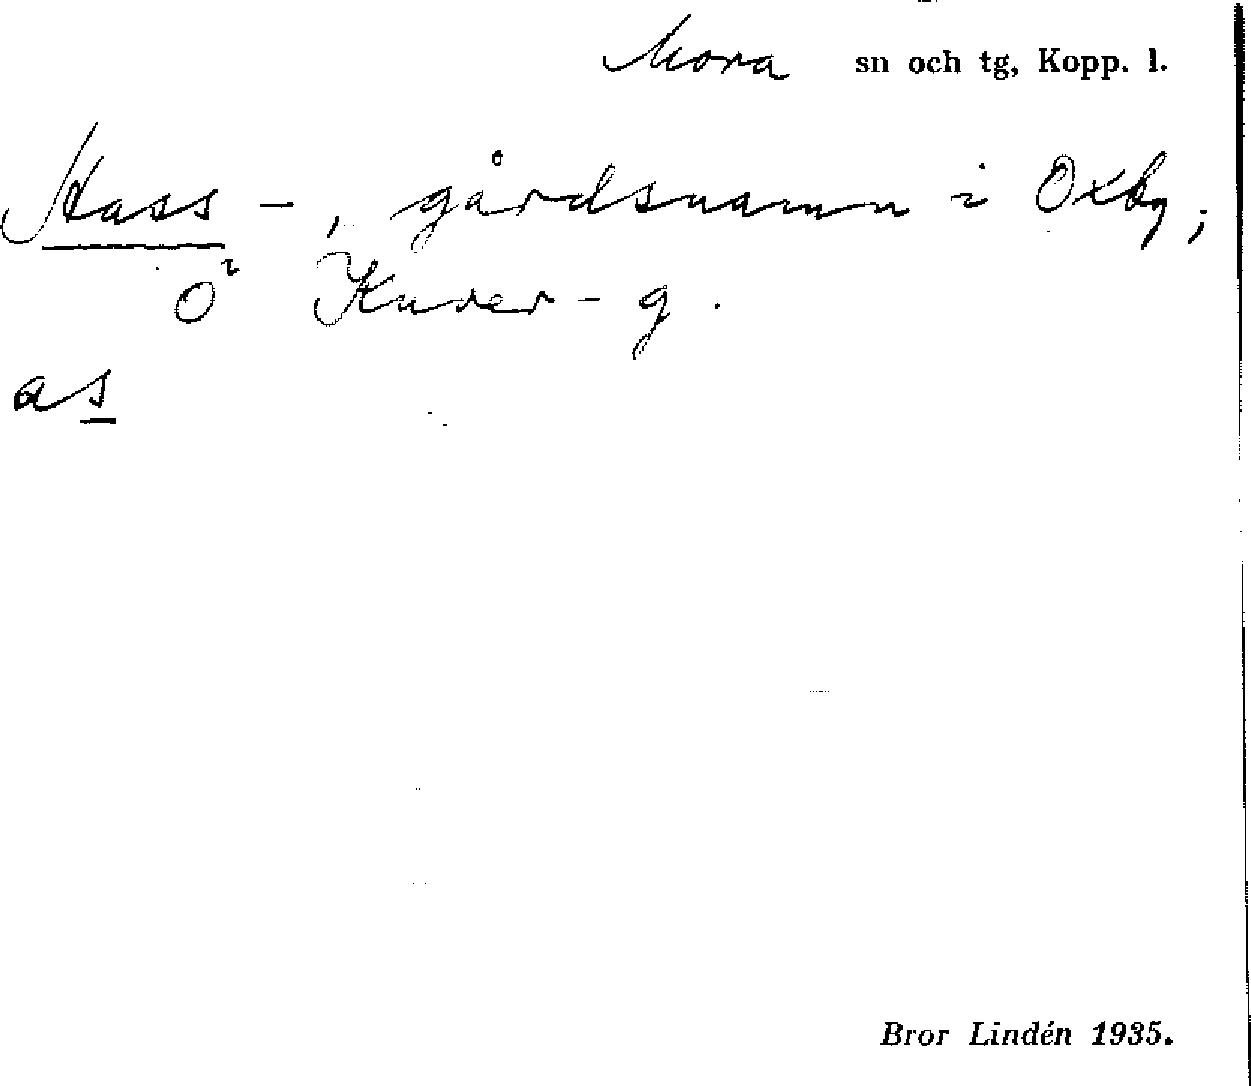 Mora sn och tg, Kopp. l.
Stass -, gårdsnamn i Oxby;
O² Knrer - g.
as
Bror Lindén 1935.